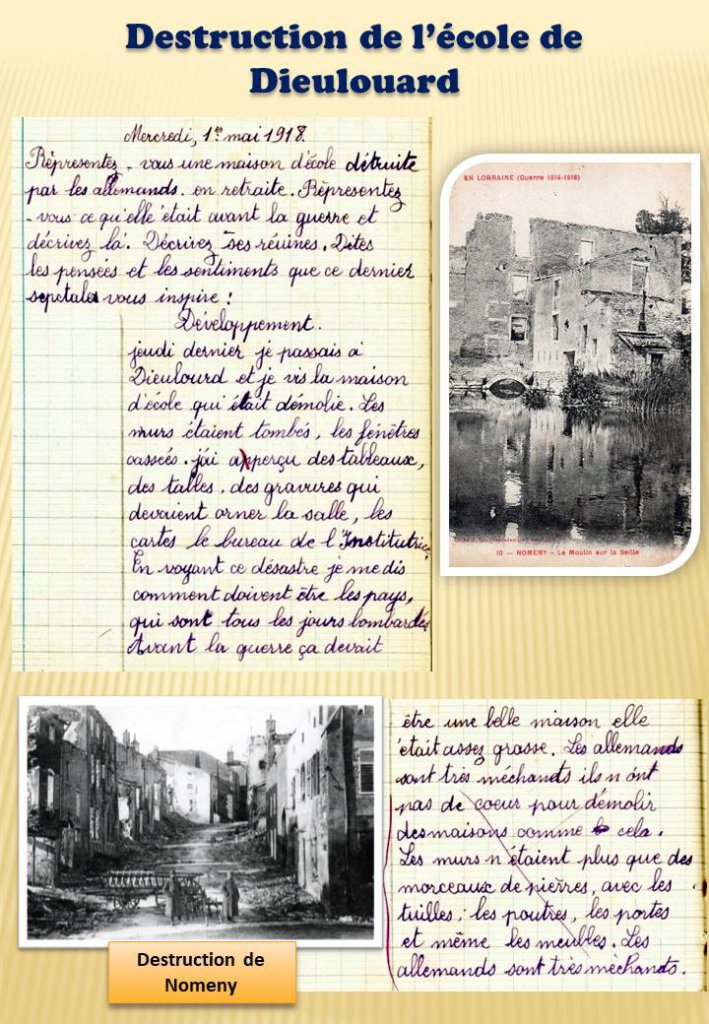 Destruction de l'école de
Dieulouard
Mercredi, 1er mai 1918.
Réprésentez-vous une maison d'école détruite
par les allemands en retraite. Réprésentez
-vous ce qu'elle était avant la guerre et
décrivez là. Décrivez ses réuines. Dites
les pensées et les sentiments que ce dernier
sepctale vous inspire :
Développement.
jeudi dernier je passais à
Dieulourd et je vis la maison
d'école qui était démolie. Les
murs étaient tombés, les fénêtres
cassées. j'ai apperçu des tableaux,
des tables, des gravures qui
devaient orner la salle, les
cartes le bureau de l'Institutrice
En voyant ce désastre je me dis
comment doivent être les pays,
qui sont tous les jours bombardés
Avant la guerre ça devait
EN LORRAINE (Guerre 1914-1918)
10 — NOMENY — Le Moulin sur la Seille
être une belle maison elle
était assez grosse. Les allemands
sont très méchants ils n'ont
pas de coeur pour démolir
des maisons comme cela.
Les murs n'étaient plus que des
morceaux de pierres, avec les
tuilles, les poutres, les portes
et même les meubles. Les
allemands sont très méchants.
Destruction de
Nomeny